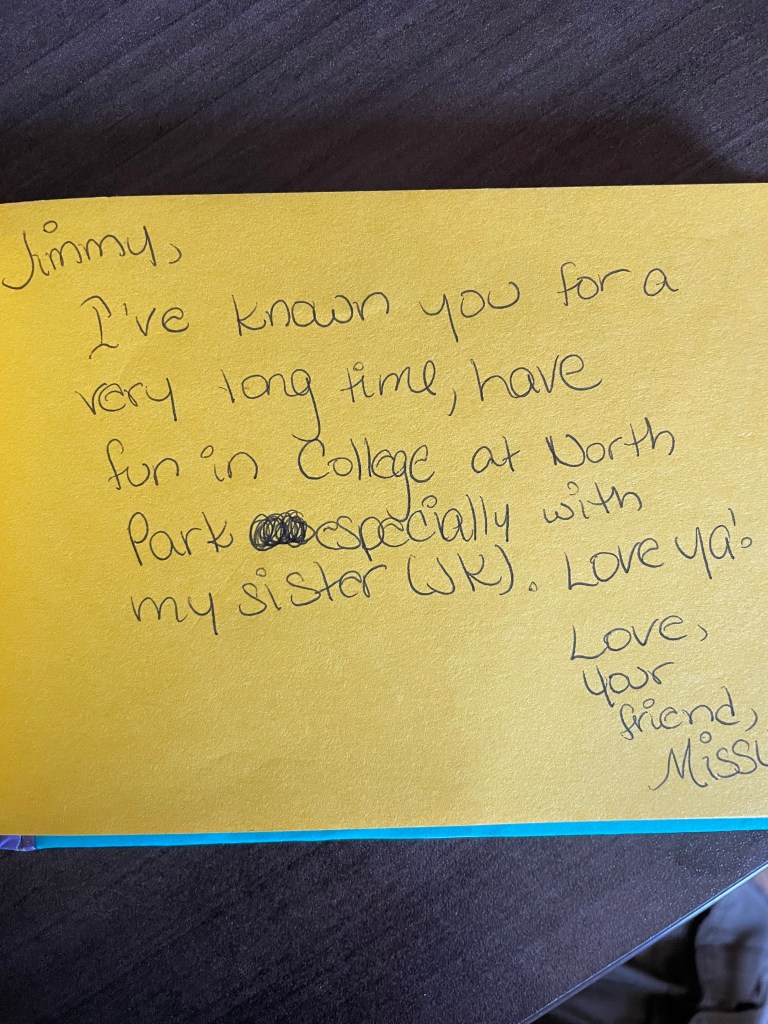 Jimmy,
I've known you for a
very long time, have
fun in College at North
Park especially with
my sister (JK). Love ya!
Love,
your
friend,
Missy